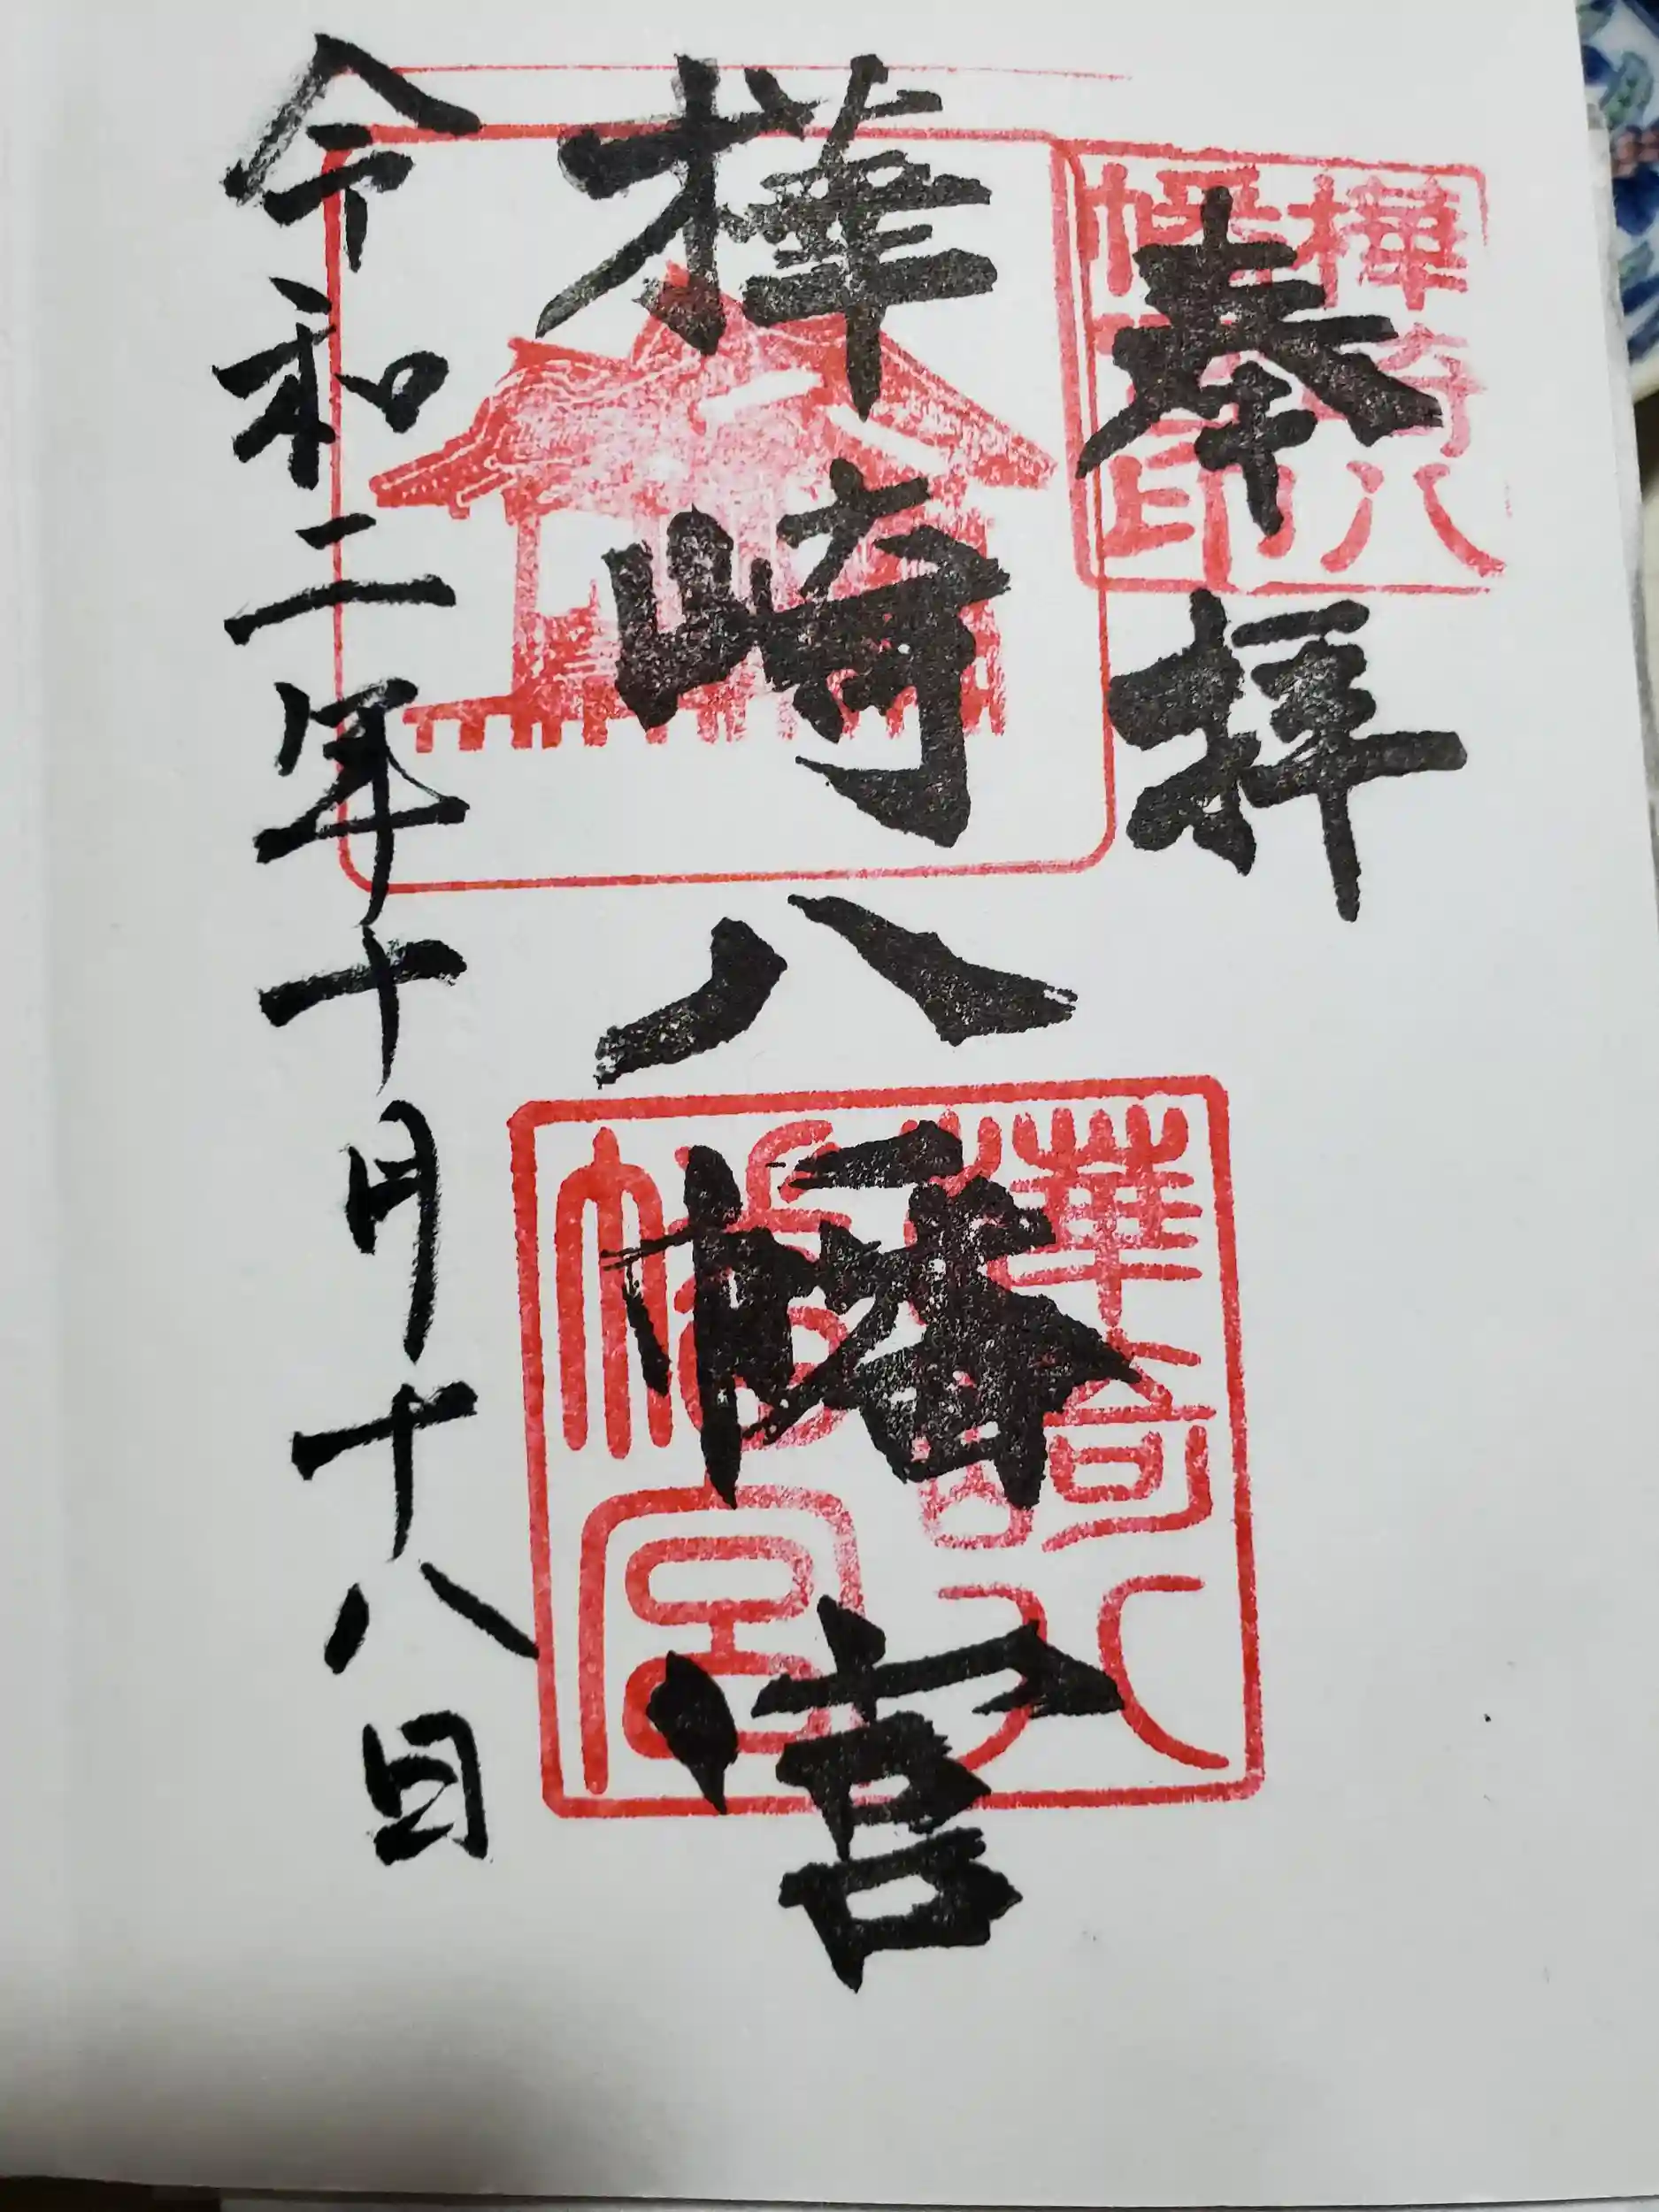 奉拝
樺崎八幡宮
令和二年十月十八日
樺崎八
幡宮印
樺崎八
幡宮